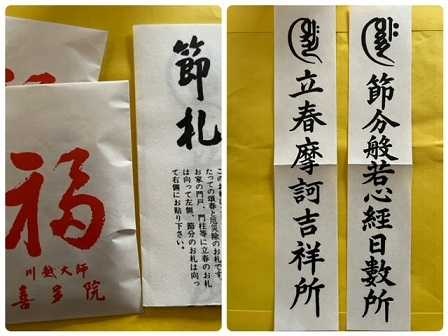 福
川越大師
喜多院
節札
たっての頌春と厄災除のお札です。
お家の門戸、門柱等に立春のお札
は向って左側、節分のお札は向っ
て右側にお貼り下さい。
節分般若心経日数所
立春摩訶吉祥所